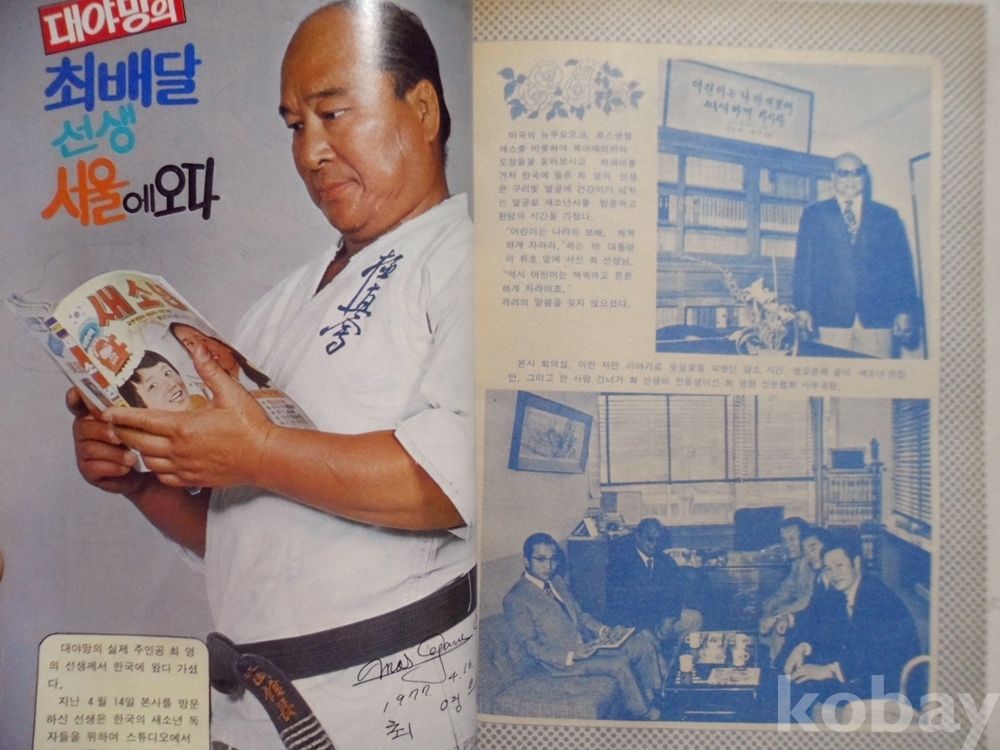 대야망의
최배달
선생
서울에오다
極真会
새소년
대야망의 실제 주인공 최 영
의 선생께서 한국에 왔다 가셨
다.
지난 4월 14일 본사를 방문
하신 선생은 한국의 새소년 독
자들을 위하여 스튜디오에서
Mas Oyama
1977. 4. 16
최 영 의
어린이는 나라의 보배
씩씩하게 자라라
미국의 뉴우요오크, 로스앤젤
레스를 비롯하여 북아메리카의
도장들을 둘러보시고 하와이를
거쳐 한국에 들른 최 영의 선생
은 구리빛 얼굴에 건강미가 넘치
는 얼굴로 새소년사를 방문하고
환담의 시간을 가졌다.
"어린이는 나라의 보배, 씩씩
하게 자라라,"하는 박 대통령
의 휘호 앞에 서신 최 선생님,
"역시 어린이는 씩씩하고 튼튼
하게 자라야죠,"
격려의 말씀을 잊지 않으셨다.
본사 회의실, 이런 저런 이야기로 웃음꽃을 피웠던 담소 시간, 맨오른쪽 끝이 새소년 편집
인, 그리고 한 사람 건너가 최 선생의 친동생이신 최 영정 신문협회 사무국장.
kobay